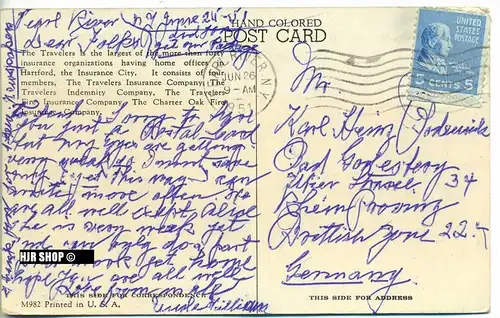 Pearl River N.Y. June 25-51
Dear Folks
HAND COLORED
POST CARD
The Travelers is the largest of the more than forty
insurance organizations having home offices in
Hartford, the Insurance City. It consists of four
members, The Travelers Insurance Company, The
Travelers Indemnity Company, The Travelers
Fire Insurance Company, The Charter Oak Fire
Insurance Company.
sorry to give
you just a Postal Card
but my eyes are getting
very weak so I must save
my eyes this way I can
write more often. We
are all well except Alice
she is very weak yet
and can only do a part
of her work. Yet home
hope you are all well
Love from all
Uncle William
THIS SIDE FOR CORRESPONDENCE
M982 Printed in U. S. A.
HJR SHOP ©
N.Y.
JUN 26
9-AM
1951
5 CENTS 5
Mr.
Karl Hans
Bad Godesberg
34
Rhein Provinz
Brittish Zone 22.
Germany
THIS SIDE FOR ADDRESS